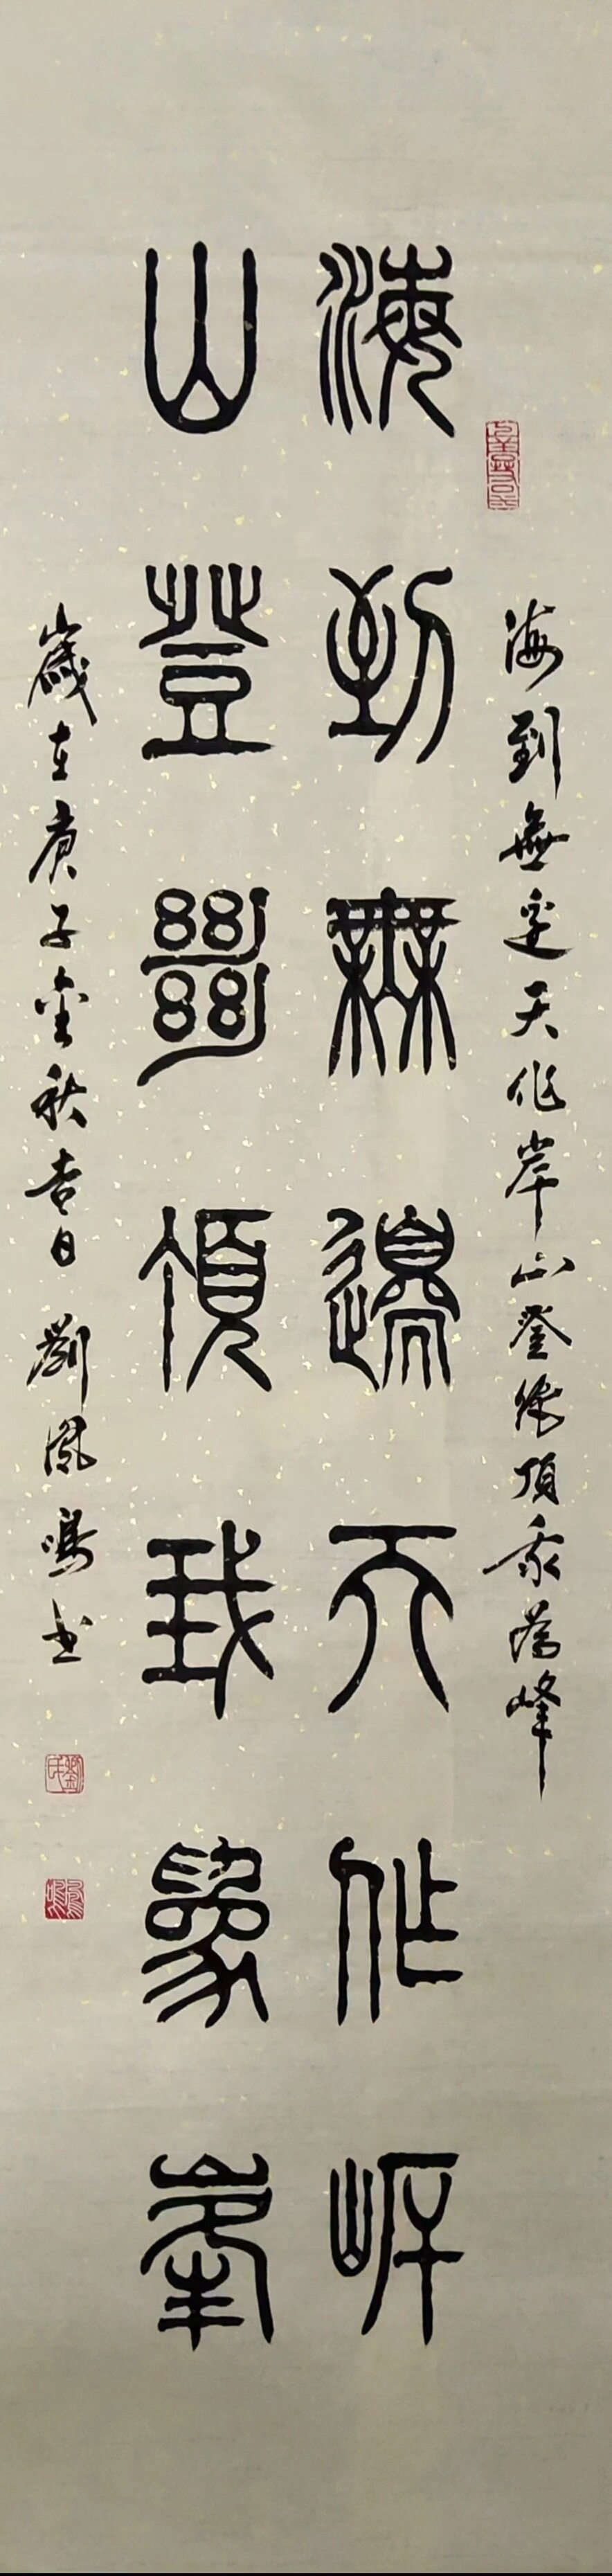 海到無邊天作岸山登絕頂我為峰
海到無邊天作岸
山登絕頂我為峯
歲在庚子金秋吉日劉鳳鳴书
劉氏
鳳鳴